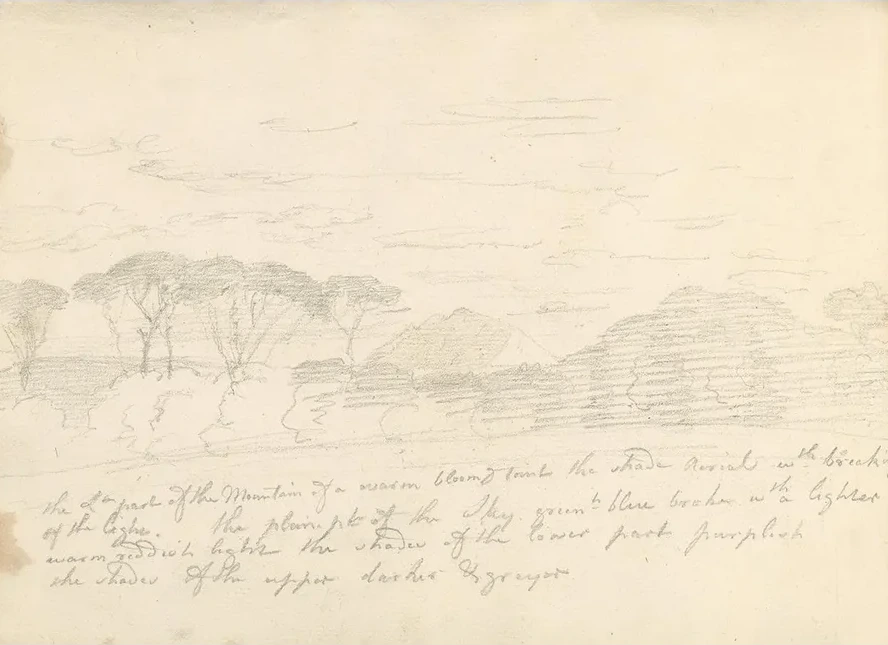 the L^t part of the Mountain of a warm bloomy tint the shade Aerial w^th breaks
of the light. the plain p^t of the Sky green^h blue broken w^th a lighter
warm reddish light the shades of the lower part purplish
the shades of the upper darker & greyer